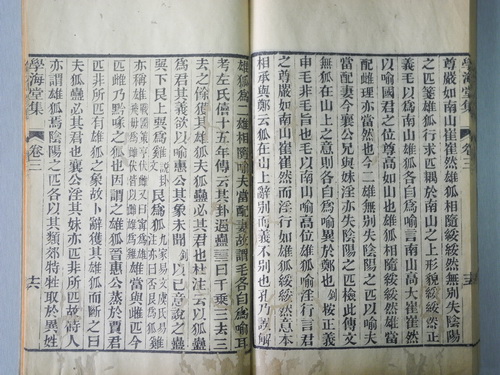 學海堂集 卷三 十五
尊嚴如南山崔崔然雄狐相隨綏綏然無別失陰陽
之匹箋雄狐行求匹耦於南山之上形貌綏綏然正
義毛以為雄狐各自為喻言南山高大崔崔然
以喻國君之位尊高如山也雄狐相隨綏綏然雄當
配雌理亦當然也今二雄無別失陰陽之匹以喻夫
當配妻今襄公兄與妹淫亦失陰陽之匹檢此傳文
無狐在山上之意則各自為喻異於鄭也釗按正義
申毛非毛旨也毛以南山喻高位雄狐喻淫行言君
之尊嚴如南山崔崔然其淫行如雄狐綏綏然意本
相承與鄭云狐在山上辭別而義不別也孔乃誤解
雄狐為二雄相隨喻夫當配妻故謂毛各自為喻耳
考左氏僖十五年傳云其卦遇蠱曰千乘三去三
去之餘獲其雄狐夫狐蠱必其君也杜注云以狐蠱
為君其義欲以喻晉惠公其象未聞釗以已意說之蠱
巽下艮上巽為雞說卦文艮為狐
亦稱雄
匹雌乃黔喙之狐也因謂之雄狐晉惠公蒸於賈君
匹非所匹有雄狐之象故卜辭獲其雄狐而斷之曰
夫狐蠱必其君也襄公淫其妹亦匹非所匹故詩人
亦謂雄狐焉陰陽之匹各以其類郊特牲取於異姓
學海堂集 卷三 十六